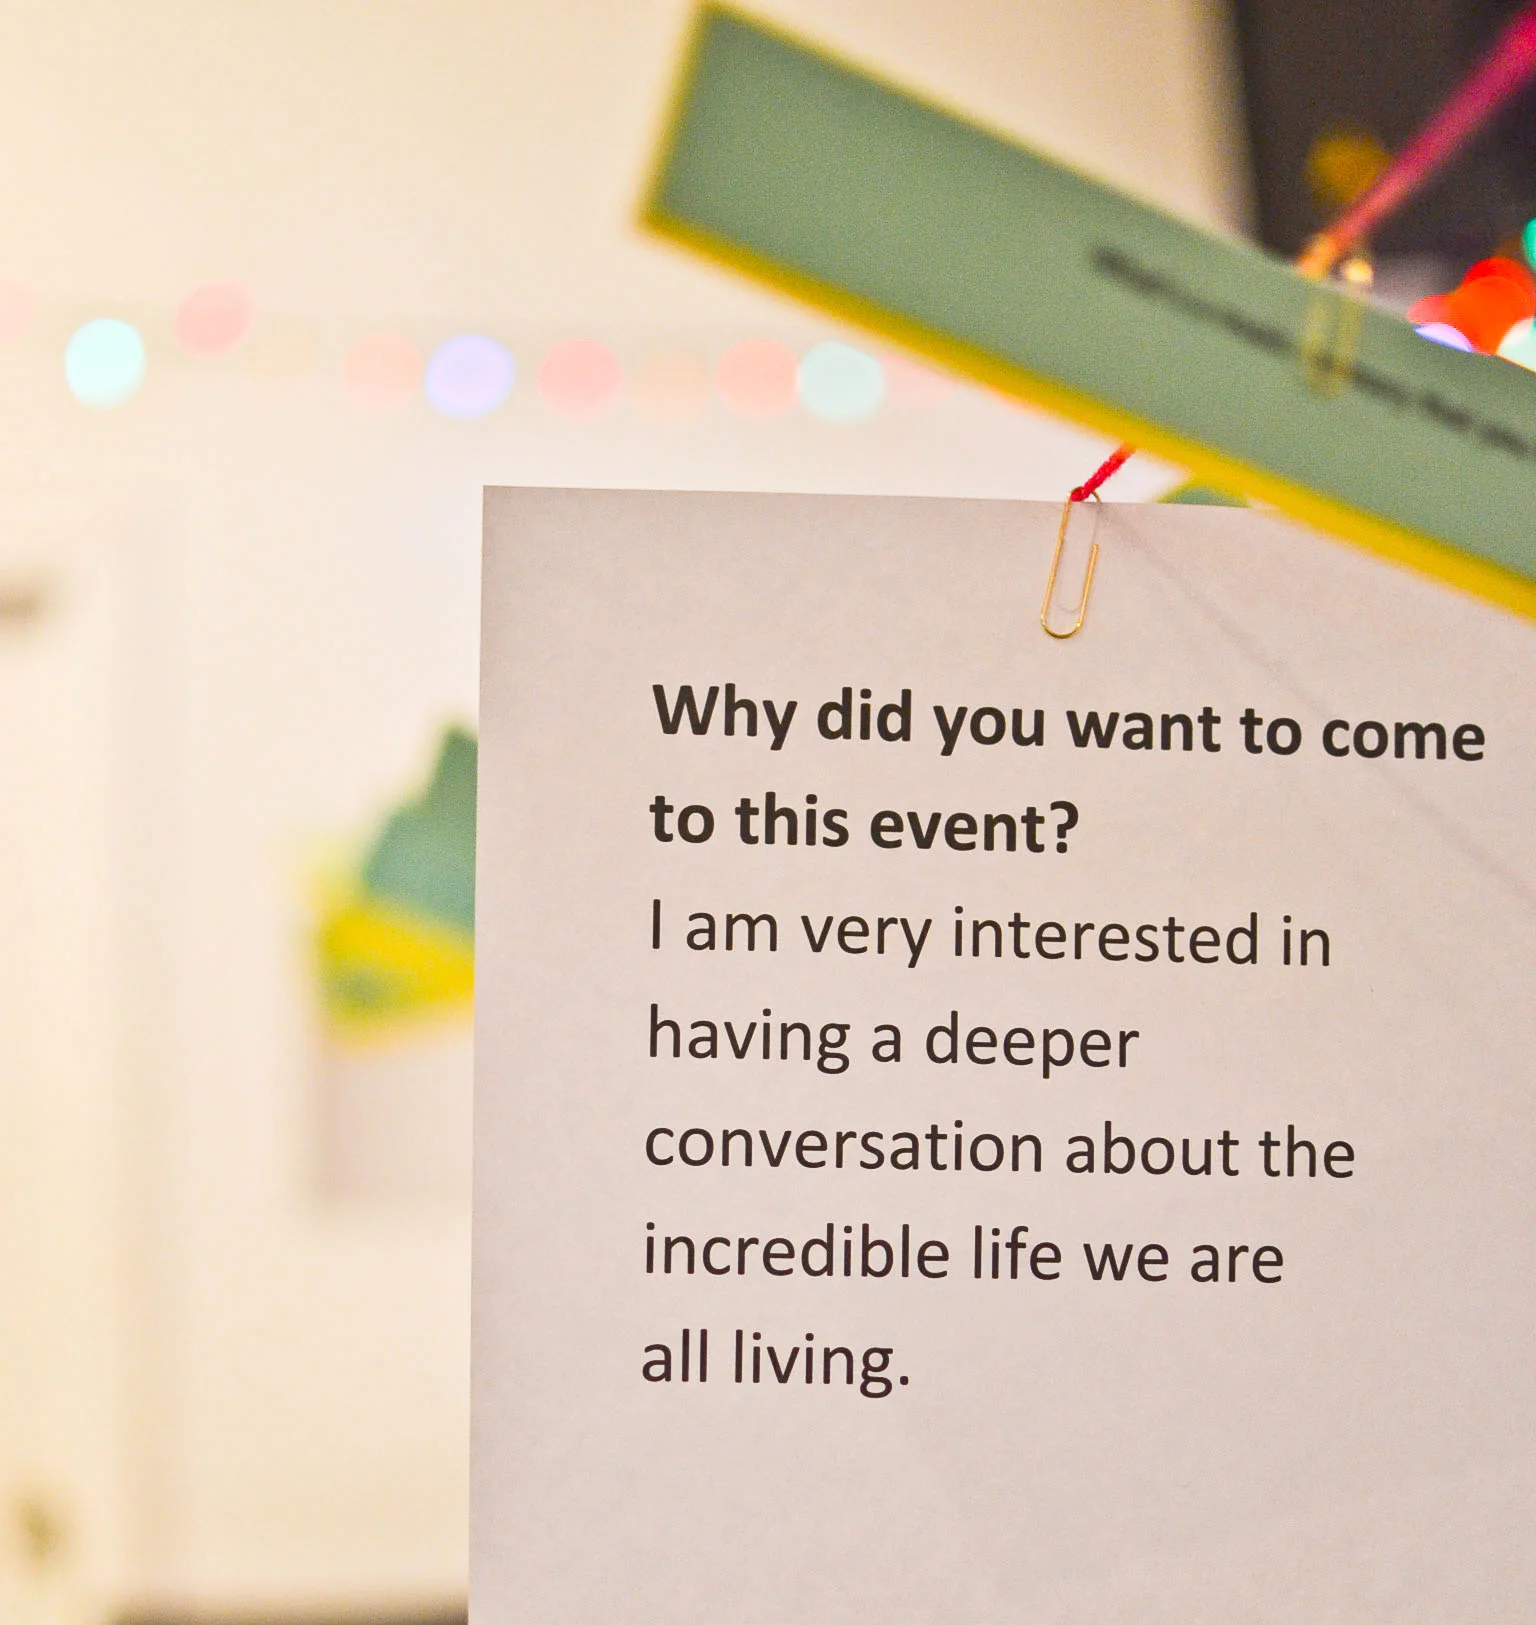 Why did you want to come
to this event?
I am very interested in
having a deeper
conversation about the
incredible life we are
all living.